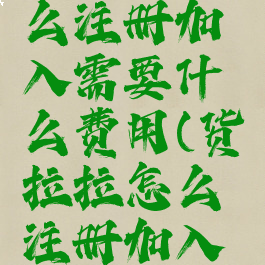 么注册加
入需要什
么费用(货
拉拉怎么
注册加入